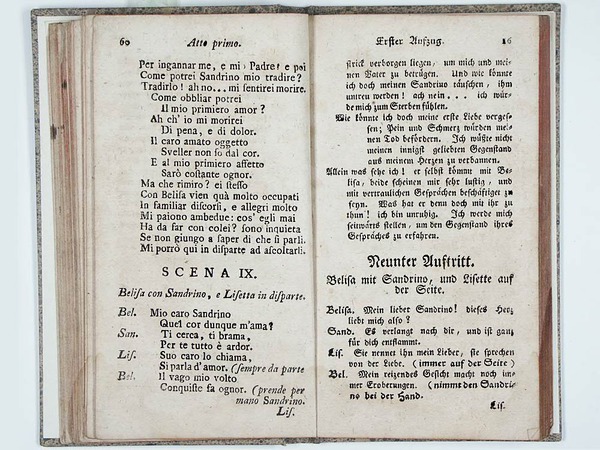 60 Atto primo.
Per ingannar me, e mio Padre? e poi
Come potrei Sandrino mio tradire?
Tradirlo! ah no... mi sentirei morire.
Come obbliar potrei
Il mio primiero amor?
Ah ch' io mi morirei
Di pena, e di dolor.
Il caro amato oggetto
Sveller non so dal cor.
E al mio primiero affetto
Sarò costante ognor.
Ma che rimiro? ei stesso
Con Belisa vien quà molto occupati
In familiar discorsi, e allegri molto
Mi paiono ambedue: cos' egli mai
Ha da far con colei? sono inquieta
Se non giungo a saper di che si parli.
Mi porrò qui in disparte ad ascoltarli.
SCENA IX.
Belisa con Sandrino, e Lisetta in disparte.
Bel. Mio caro Sandrino
Quel cor dunque m'ama?
San. Ti cerca, ti brama,
Per te tutto è ardor.
Lis. Suo caro lo chiama,
Si parla d' amor. (sempre da parte
Bel. Il vago mio volto
Conquiste fa ognor. (prende per
mano Sandrino.
Lis.
Erster Aufzug.
strickt verborgen liegen, um mich und mei-
nen Vater zu betrügen. Und wie könnte
ich doch meinen Sandrino täuschen, ihm
untreu werden! ach nein... ich wür-
de mich zum Sterben fühlen.
Wie könnte ich doch meine erste Liebe verges-
sen; Pein und Schmerz würden mei-
nen Tod befördern. Ich wüßte nicht
meinen innigst geliebten Gegenstand
aus meinem Herzen zu verbannen.
Allein was sehe ich! er selbst kömmt mit Be-
lisa, beide scheinen mir sehr lustig, und
mit vertraulichen Gesprächen beschäftiget zu
seyn. Was hat er denn doch mit ihr zu
thun! ich bin unruhig. Ich werde mich
seitwärts stellen, um den Gegenstand ihres
Gespräches zu erfahren.
Neunter Auftritt.
Belisa mit Sandrino, und Lisette auf
der Seite.
Belisa. Mein lieber Sandrino! dieses Herz
liebt mich also?
Sand. Es verlangt nach dir, und ist ganz
für dich entflammt.
Lis. Sie nennet ihn mein Lieber, sie sprechen
von der Liebe. (immer auf der Seite)
Bel. Mein reizendes Gesicht macht noch im-
mer Eroberungen. (nimmt den Sandri-
no bei der Hand.
Lis.